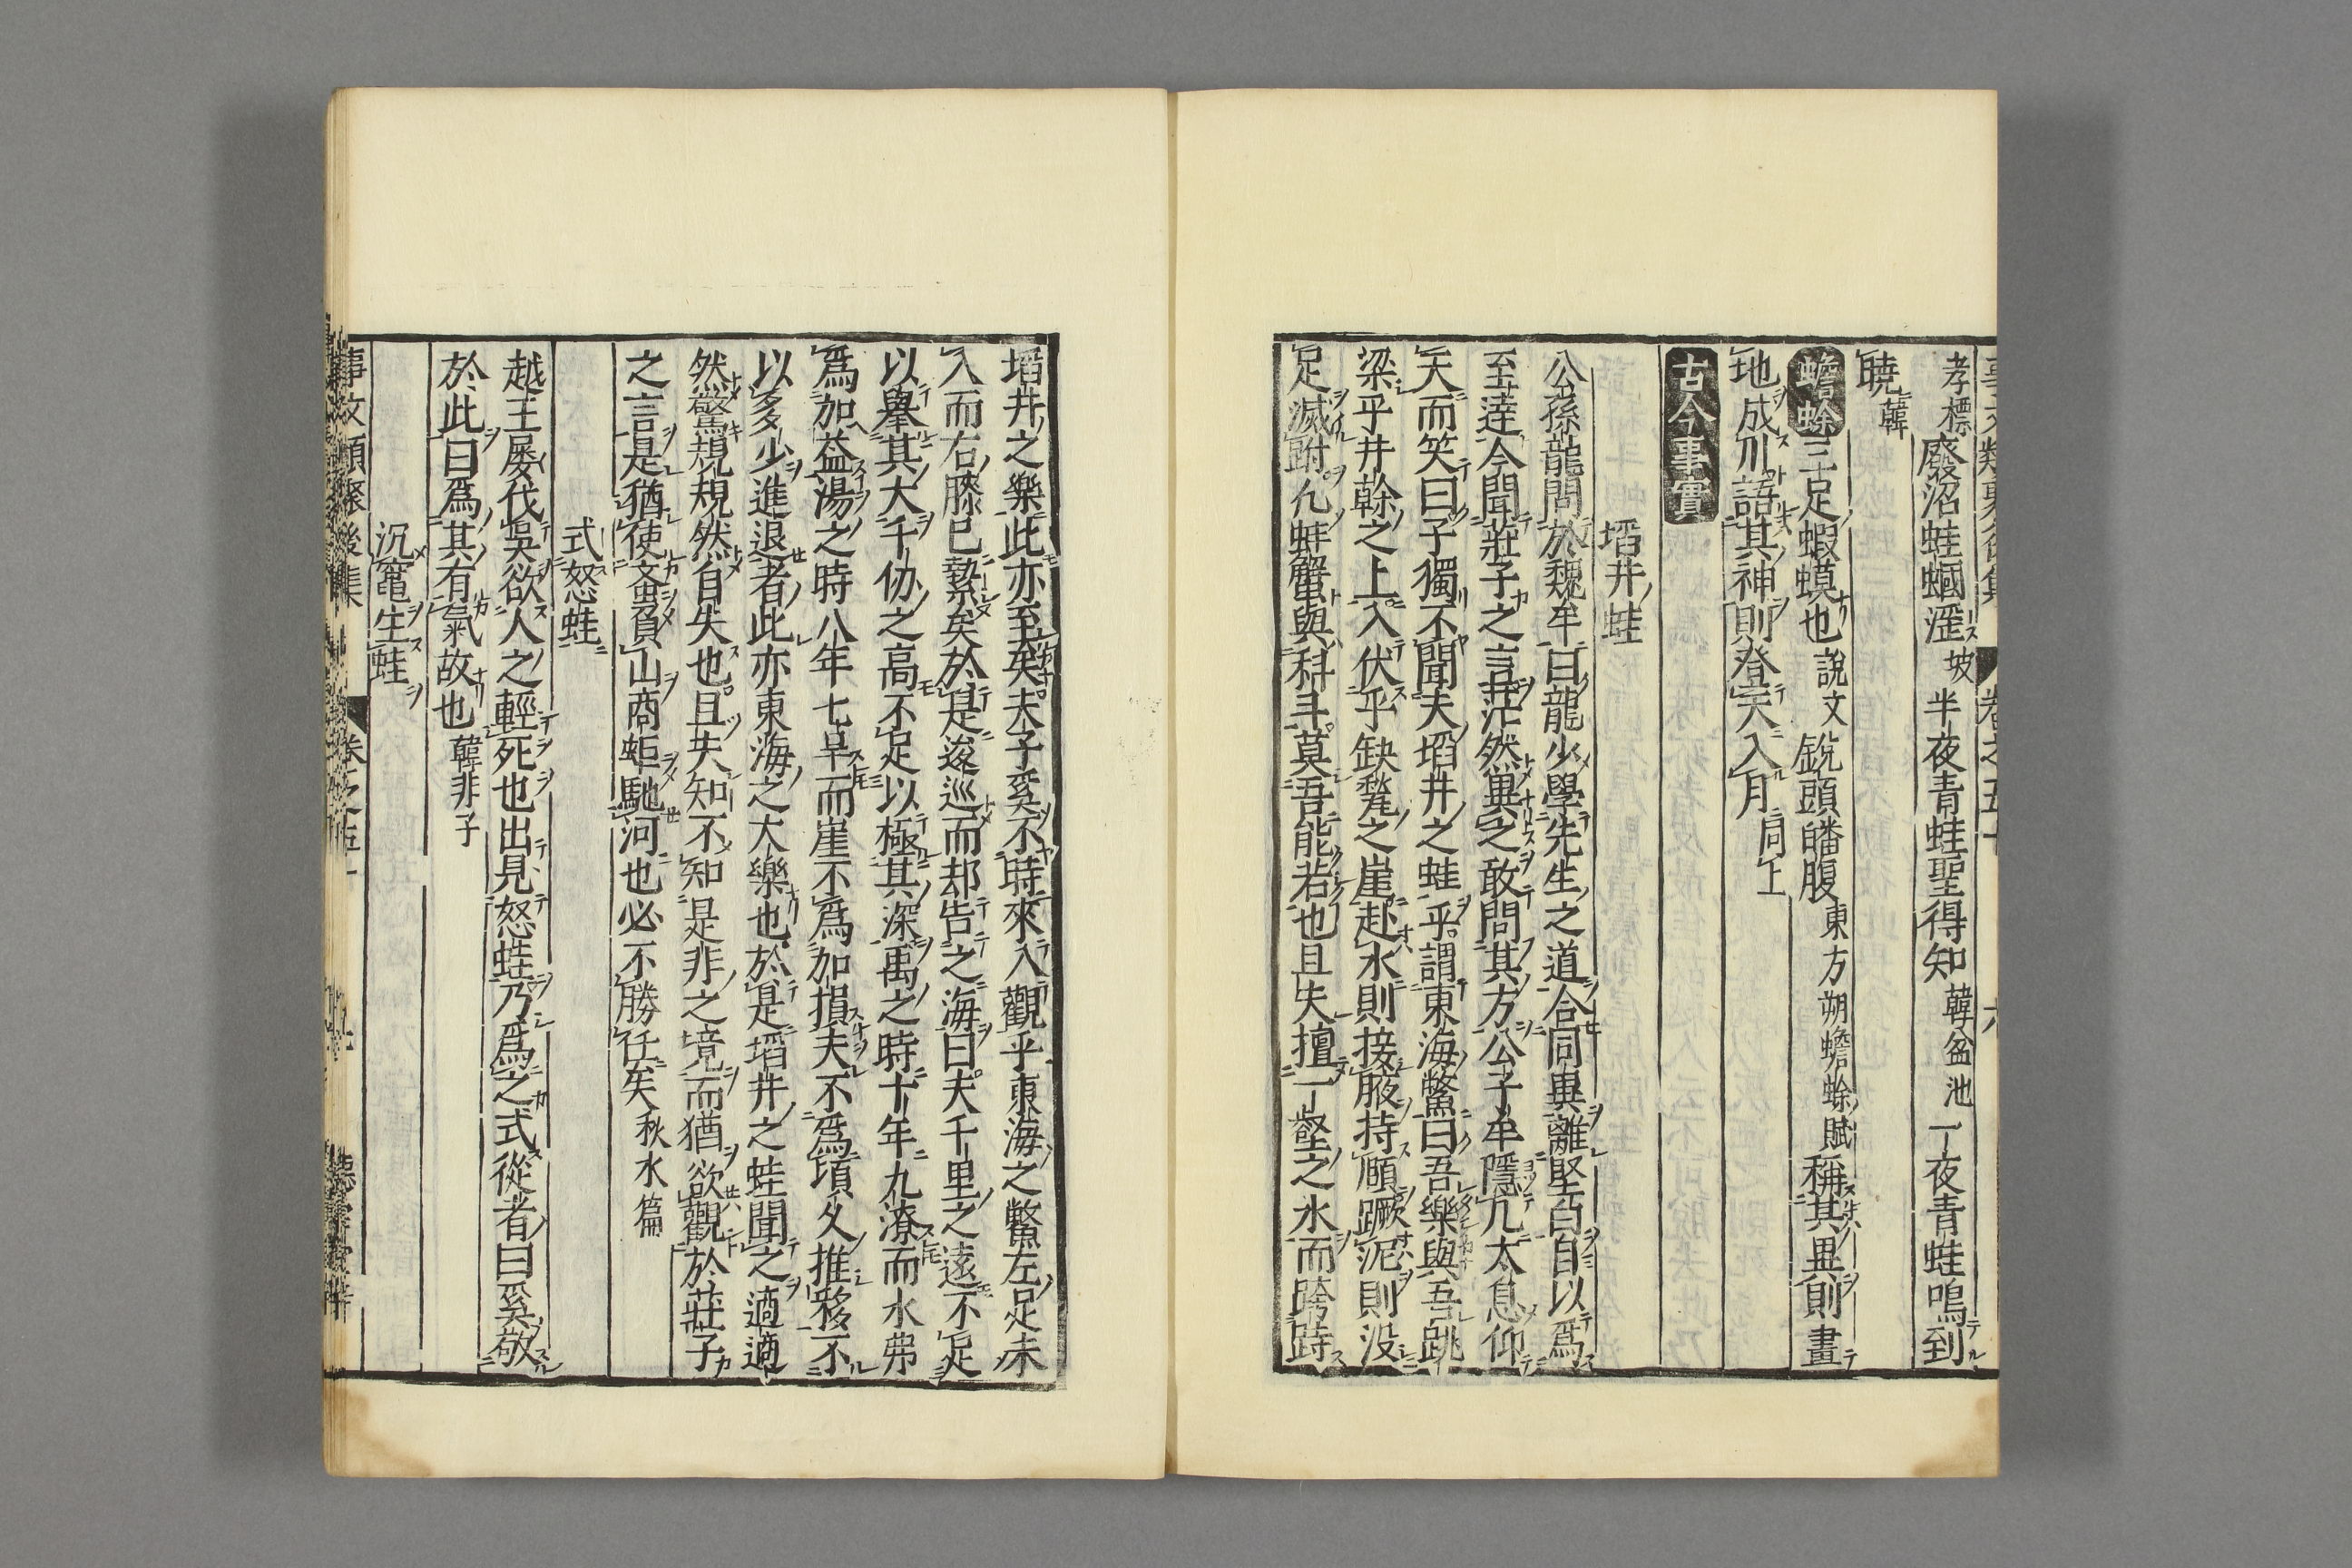 孝標廢沼蛙蟈淫坡半夜青蛙聖得知韓盆池一夜青蛙鳴到
曉韓
蟾蜍三足蝦蟆也說文銳頭皤腹東方朔蟾蜍賦稱其異則畫
地成川語其神則登天入月同上
古今事實
埳井蛙
公孫龍問於魏牟曰龍少學先生之道合同異離堅白自以爲
至達今聞莊子之言茫然異之敢問其方公子牟隱几太息仰
天而笑曰子獨不聞夫埳井之蛙乎謂東海鱉曰吾樂與吾跳
梁乎井幹之上入伏乎缺甃之崖赴水則接腋持頤蹶泥則没
足滅跗凣蚌蟹與科斗莫吾能若也且夫擅一壑之水而跨跱
埳井之樂此亦至矣夫子奚不時來入觀乎東海之鱉左足未
入而右膝已縶矣於是逡巡而却告之海曰夫千里之遠不足
以擧其大千仞之高不足以極其深禹之時十年九潦而水弗
爲加益湯之時八年七旱而崖不爲加損夫不爲頃久推移不
以多少進退者此亦東海之大樂也於是埳井之蛙聞之適適
然驚規規然自失也且夫知不知是非之境而猶欲觀於莊子
之言是猶使蚉負山商蚷馳河也必不勝任矣秋水篇
式怒蛙
越王屡伐吳欲人之輕死也出見怒蛙乃爲之式從者曰奚敬
於此曰爲其有氣故也韓非子
沉竈生蛙